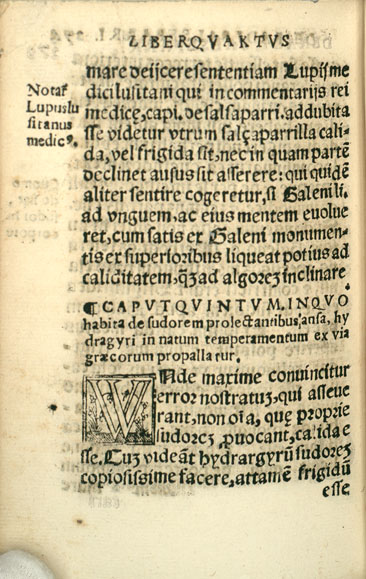 LIBERQVARTVS
Notat̃
Lupuslu
sitanus
medicꝰ.
mare deijcere sententiam Lupi jme
dici lusitani qui in commentarijs rei
medicę, capi. de salsaparri. addubita
sse videtur vtrum salçaparrilla cali-
da, vel frigida sit, nec in quam partē
declinet ausus sit asserere: qui quidē
aliter sentire cogeretur, si Galeni li.
ad vnguem, ac eius mentem euolue
ret, cum satis ex Galeni monumen-
tis ex superioribus liqueat potius ad
caliditatem, q̃ʒ ad algoreʒ inclinare
¶CAPVTQVINTVM.INQVO
habita de sudorem prolectantibus ansa, hy
dragyri in natum temperamentum ex via
græcorum propallatur.
VVNde maxime conuincitur
error nostratuʒ, qui asseue
rant, non oīa, quę proprie
sudoreʒ ꝓuocant, calida e
sse. Cuʒ videāt hydrargyrū sudoreʒ
copiosissime facere, attamē frigidū
esse